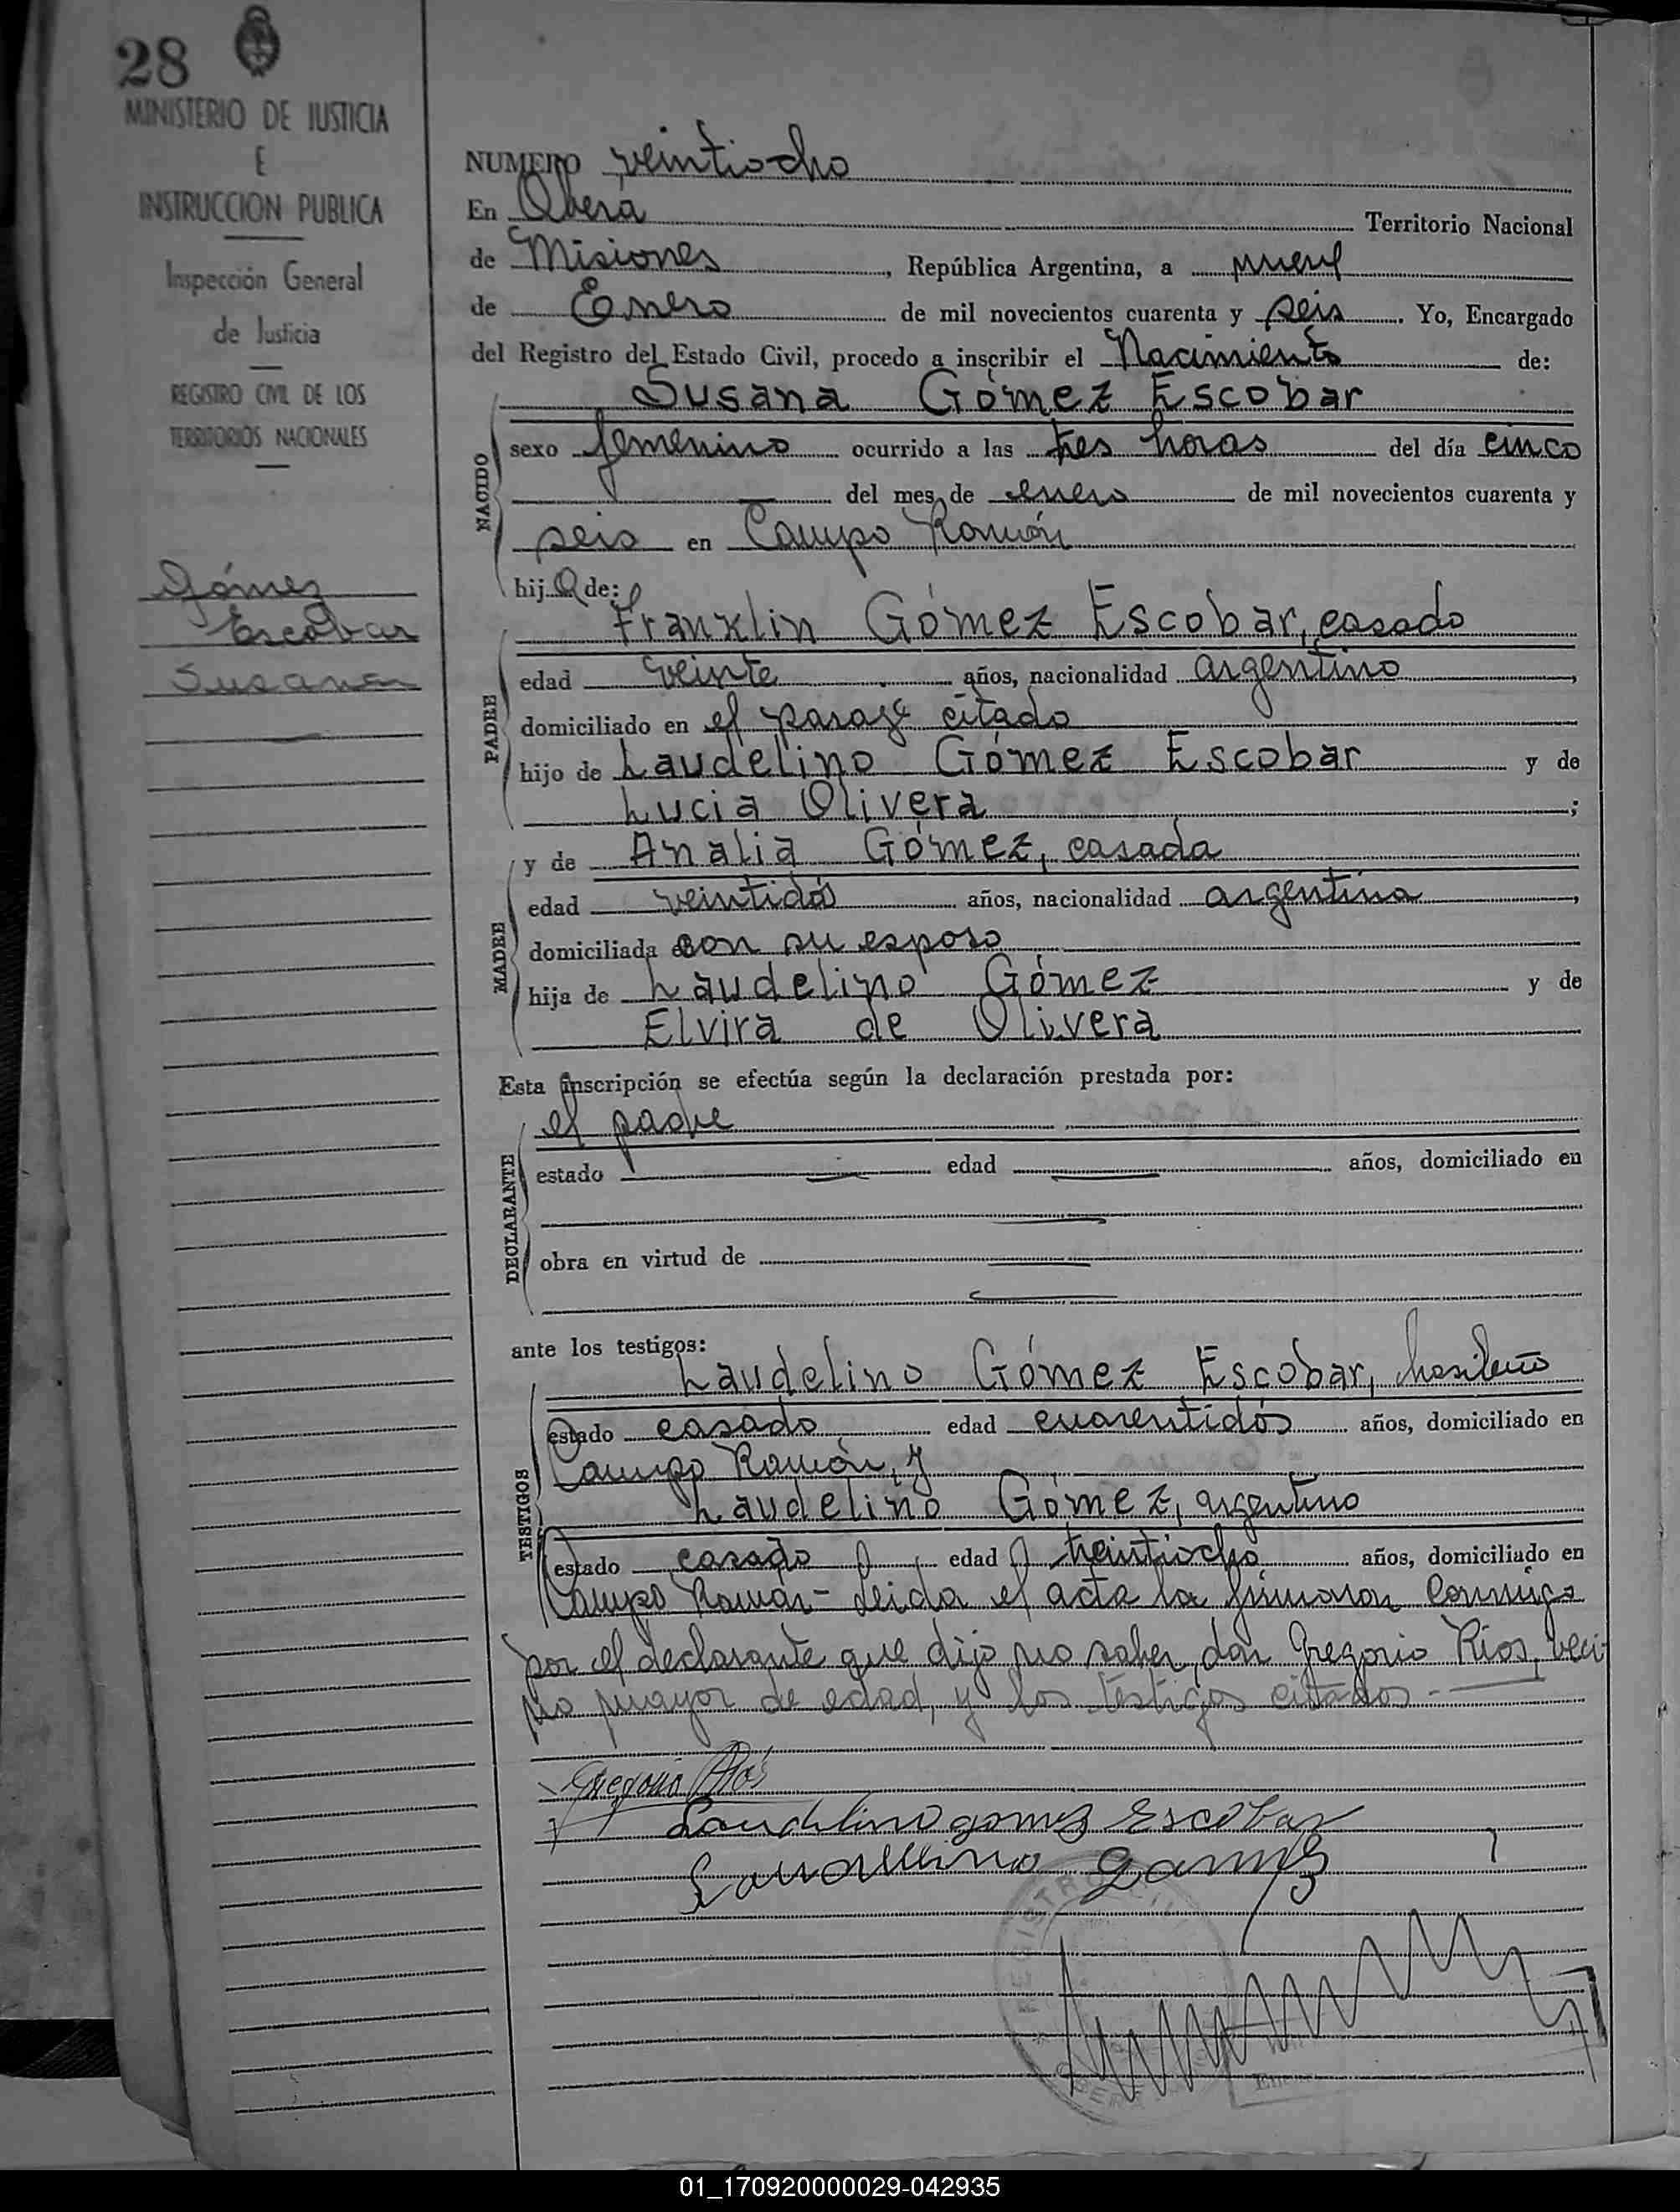 28
MINISTERIO DE JUSTICIA
E
INSTRUCCION PUBLICA
Inspección General
de Justicia
REGISTRO CIVIL DE LOS
TERRITORIOS NACIONALES
Gómez
Escobar
Susana
NUMERO veintiocho
En Oberá Territorio Nacional
de Misiones, República Argentina, a nueve
de Enero de mil novecientos cuarenta y seis. Yo, Encargado
del Registro del Estado Civil, procedo a inscribir el Nacimiento de:
NACIDO
Susana Gómez Escobar
sexo femenino ocurrido a las tres horas del día cinco
del mes de enero de mil novecientos cuarenta y
seis en Campo Ramón
hija de:
PADRE
Franklin Gómez Escobar, casado
edad veinte años, nacionalidad argentino,
domiciliado en el paraje citado
hijo de Laudelino Gómez Escobar y de
Lucia Olivera;
MADRE
y de Analia Gómez, casada
edad veintidós años, nacionalidad argentina,
domiciliada con su esposo
hija de Laudelino Gómez y de
Elvira de Olivera
Esta inscripción se efectúa según la declaración prestada por:
DECLARANTE
el padre
estado edad años, domiciliado en
obra en virtud de
ante los testigos:
TESTIGOS
Laudelino Gómez Escobar, brasileño
estado casado edad cuarentidós años, domiciliado en
Campo Ramón, y
Laudelino Gómez, argentino
estado casado edad treintiocho años, domiciliado en
Campo Ramón - Leida el acta la firmaron conmigo
por el declarante que dijo no saber, don Gregorio Rios, veci-
no mayor de edad, y los testigos citados.
Gregorio Rios
Laudelino gomez Escobar
Laudelino gomez
REGISTRO CIVIL
OBERA
01_170920000029-042935